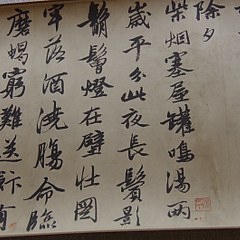 除夕
柴烟塞屋罐鳴湯兩
歲平分此夜長鬢影
鬅鬙燈在壁壮圖
牢落酒澆腸命臨
磨蝎窮難送飰有